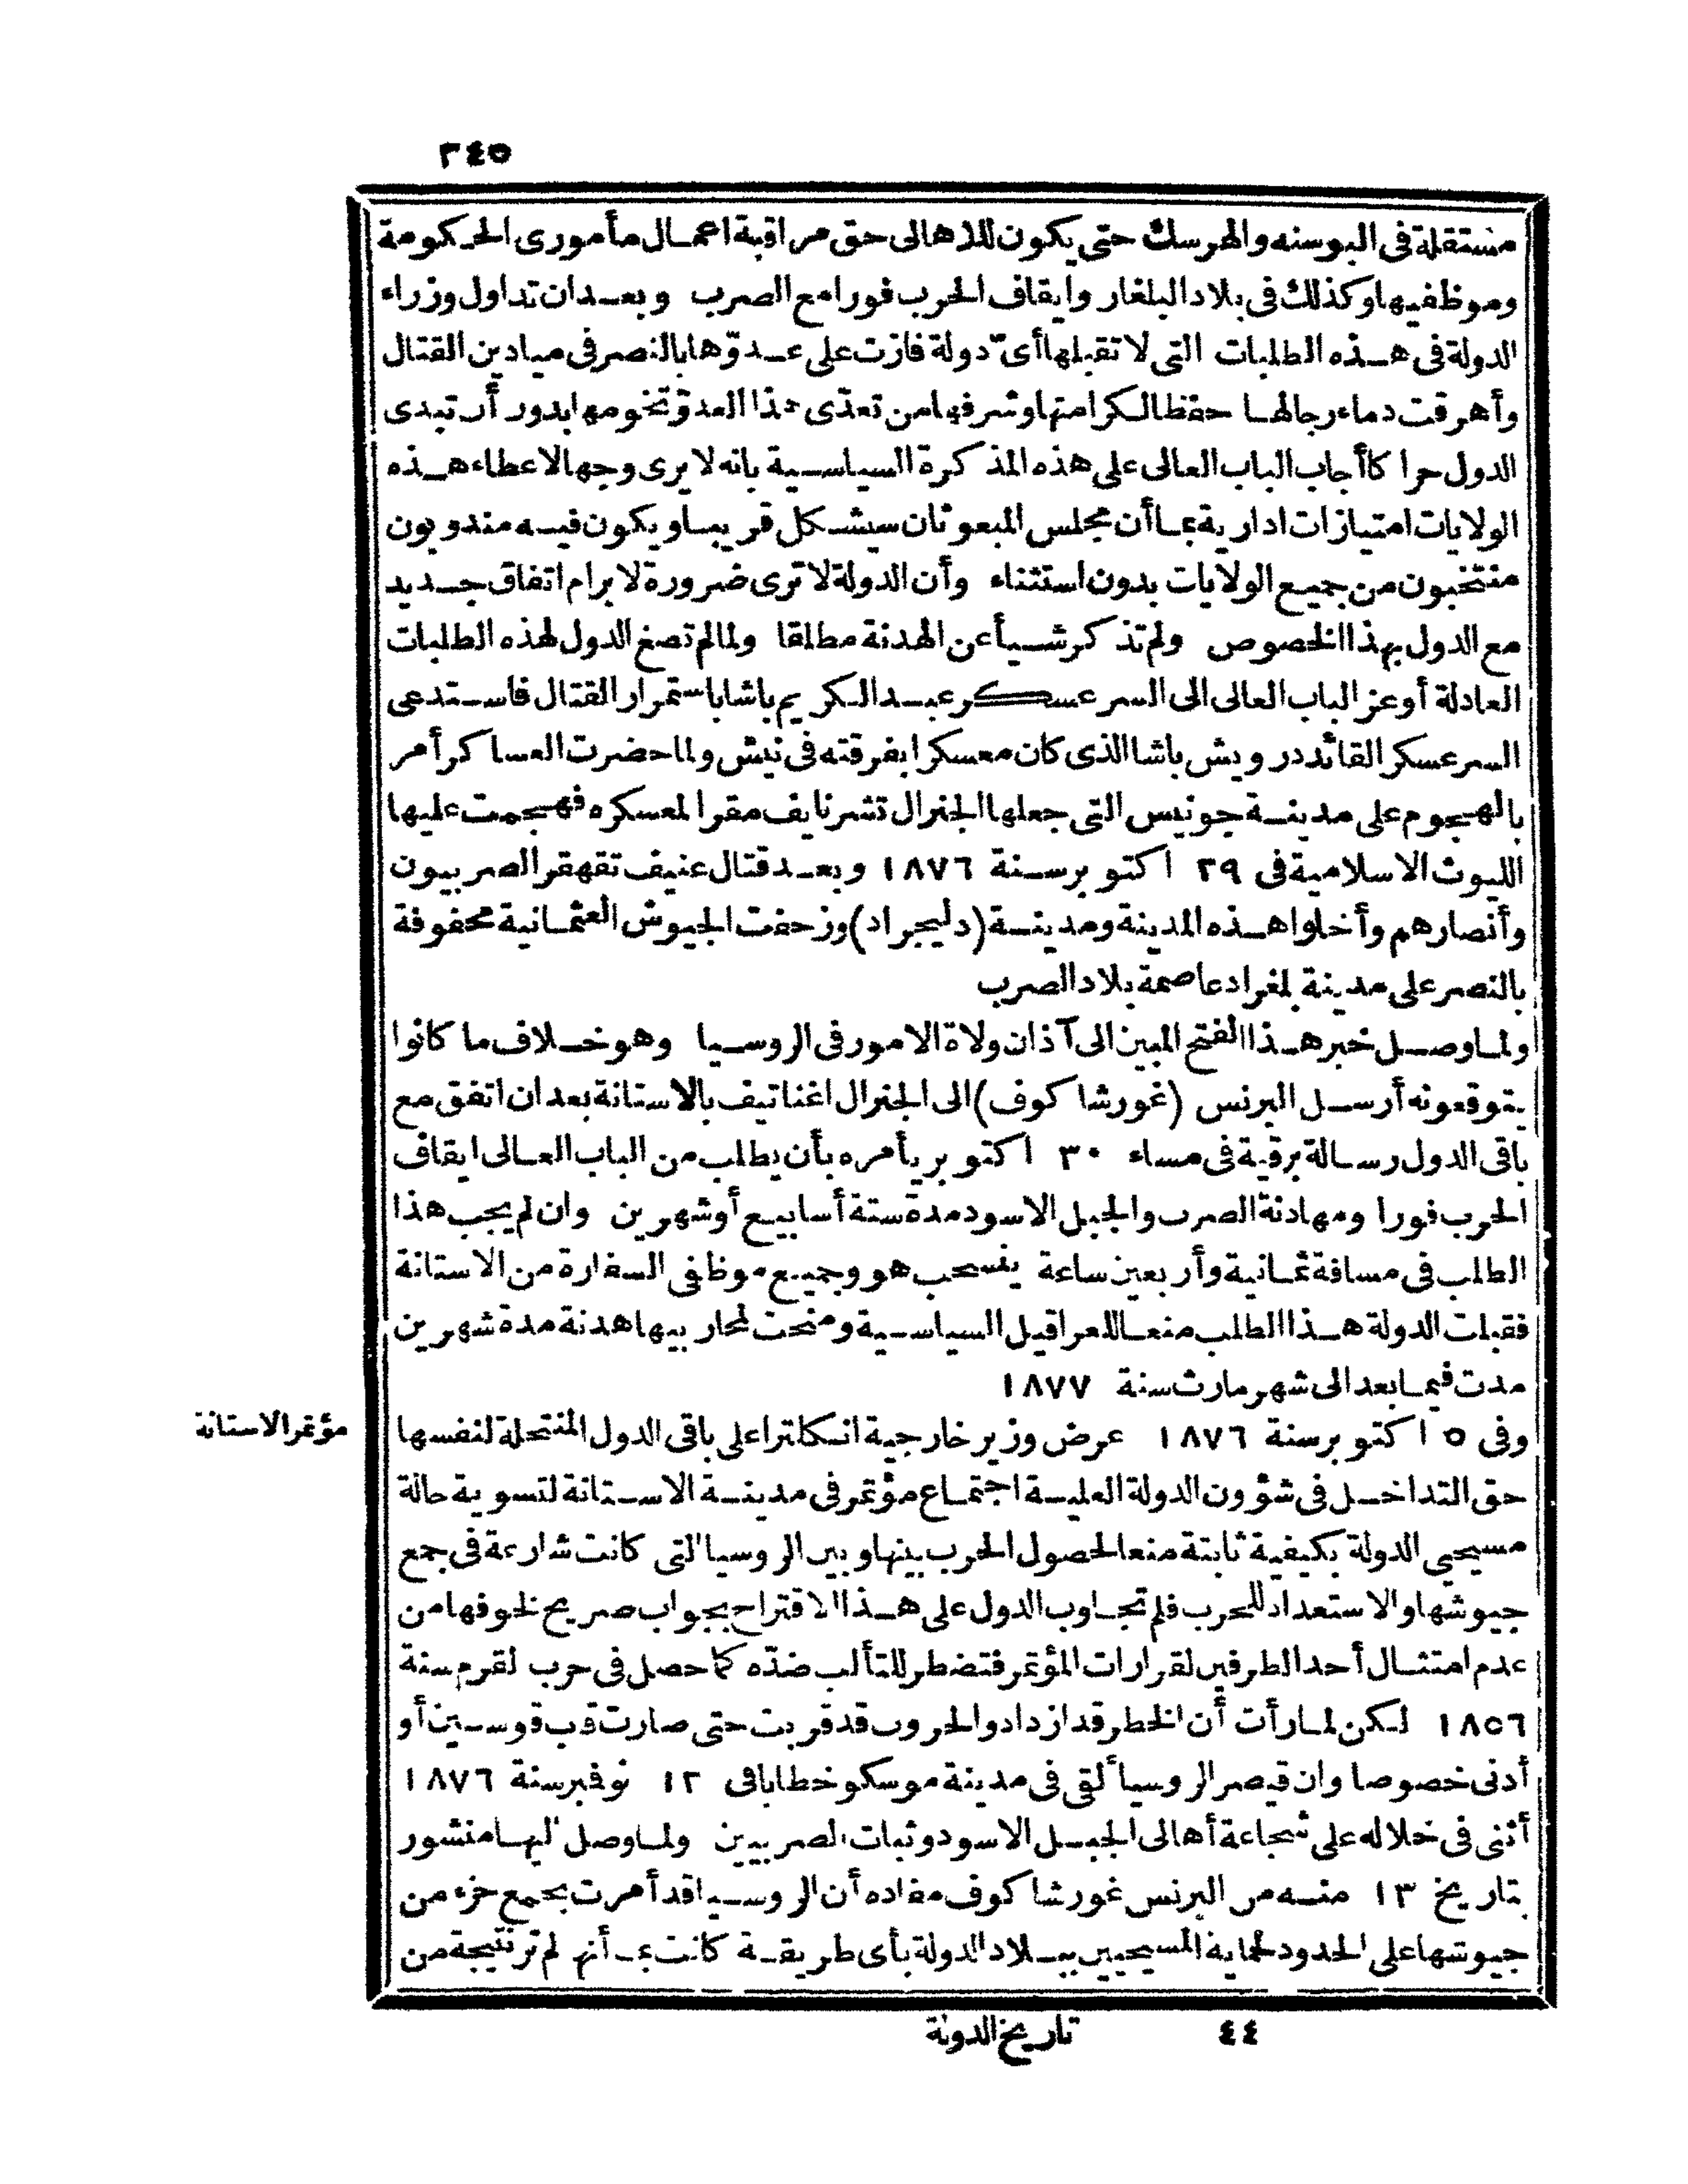 ٣٤٥
مستقلة فى البوسنه والهرسك حتى يكون للاهالى حق مراقبة اعمال مأمورى الحكومة
وموظفيها وكذلك فى بلاد البلغار وايقاف الحرب فورا مع الصرب وبعد ان تداول وزراء
الدولة فى هذه الطلبات التى لا تقبلها أىّ دولة فازت على عدوّها بالنصر فى ميادين القتال
وأهرقت دماء رجالها حفظا لكرامتها وشرفها من تعدّى هذا العدوّ تخومها بدون أن تبدى
الدول حراكا أجاب الباب العالى على هذه المذكرة السياسية بانه لا يرى وجها لاعطاء هذه
الولايات امتيازات ادارية بما أن مجلس المبعوثان سيشكل قريبا ويكون فيه مندوبون
منتخبون من جميع الولايات بدون استثناء وأن الدولة لا ترى ضرورة لابرام اتفاق جديد
مع الدول بهذا الخصوص ولم تذكر شيأ عن الهدنة مطلقا ولما لم تصغ الدول لهذه الطلبات
العادلة أوعز الباب العالى الى السر عسكر عبد الكريم باشا باستمرار القتال فاستدعى
السر عسكر القائد درويش باشا الذى كان معسكرا بفرقته فى نيش ولما حضرت العساكر أمر
بالهجوم على مدينة جونيس التى جعلها الجنرال تشرنايف مقرا لمعسكره فهجمت عليها
الليوث الاسلامية فى ٢٩ اكتوبر سنة ١٨٧٦ وبعد قتال عنيف تقهقر الصربيون
وأنصارهم وأخلوا هذه المدينة ومدينة (دليجراد) وزحفت الجيوش العثمانية محفوفة
بالنصر على مدينة بلغراد عاصمة بلاد الصرب
ولما وصل خبر هذا الفتح المبين الى آذان ولاة الامور فى الروسيا وهو خلاف ما كانوا
يتوقعونه أرسل البرنس (غورشاكوف) الى الجنرال اغناتيف بالاستانة بعد ان اتفق مع
باقى الدول رسالة برقية فى مساء ٣٠ اكتوبر يأمره بأن يطلب من الباب العالى ايقاف
الحرب فورا ومهادنة الصرب والجبل الاسود مدة ستة أسابيع أو شهرين وان لم يجب هذا
الطلب فى مسافة ثمانية وأربعين ساعة ينسحب هو وجميع موظفى السفارة من الاستانة
فقبلت الدولة هذا الطلب منعا للعراقيل السياسية ومنحت لمحاربيها هدنة مدة شهرين
مدت فيما بعد الى شهر مارث سنة ١٨٧٧
مؤتمر الاستانة
وفى ٥ اكتوبر سنة ١٨٧٦ عرض وزير خارجية انكلترا على باقى الدول المنتحلة لنفسها
حق التداخل فى شؤون الدولة العلية اجتماع مؤتمر فى مدينة الاستانة لتسوية حالة
مسيحيى الدولة بكيفية ثابتة منعا لحصول الحرب بينها وبين الروسيا التى كانت شارعة فى جمع
جيوشها والاستعداد للحرب فلم تجاوب الدول على هذا الاقتراح بجواب صريح لخوفها من
عدم امتثال أحد الطرفين لقرارات المؤتمر فتضطر للتألب ضدّه كما حصل فى حرب القرم سنة
١٨٥٦ لكن لما رأت أن الخطر قد ازداد والحروب قد قربت حتى صارت قاب قوسين أو
أدنى خصوصا وان قيصر الروسيا ألقى فى مدينة موسكو خطابا فى ١٢ نوفمبر سنة ١٨٧٦
أثنى فى خلاله على شجاعة أهالى الجبل الاسود وثبات الصربيين ولما وصل اليها منشور
بتاريخ ١٣ منه من البرنس غورشاكوف مفاده أن الروسيا قد أمرت بجمع جزء من
جيوشها على الحدود لحماية المسيحيين ببلاد الدولة بأى طريقة كانت بما أنها لم تر نتيجة من
٤٤ تاريخ الدولة